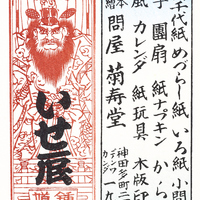 千代紙 めづらし紙 いろ紙 小間
子 團扇 紙ナプキン から
カレンダ 紙玩具 木版印
本 問屋 菊寿堂
神田多町二
デンワ
カンダ
一九
いせ辰